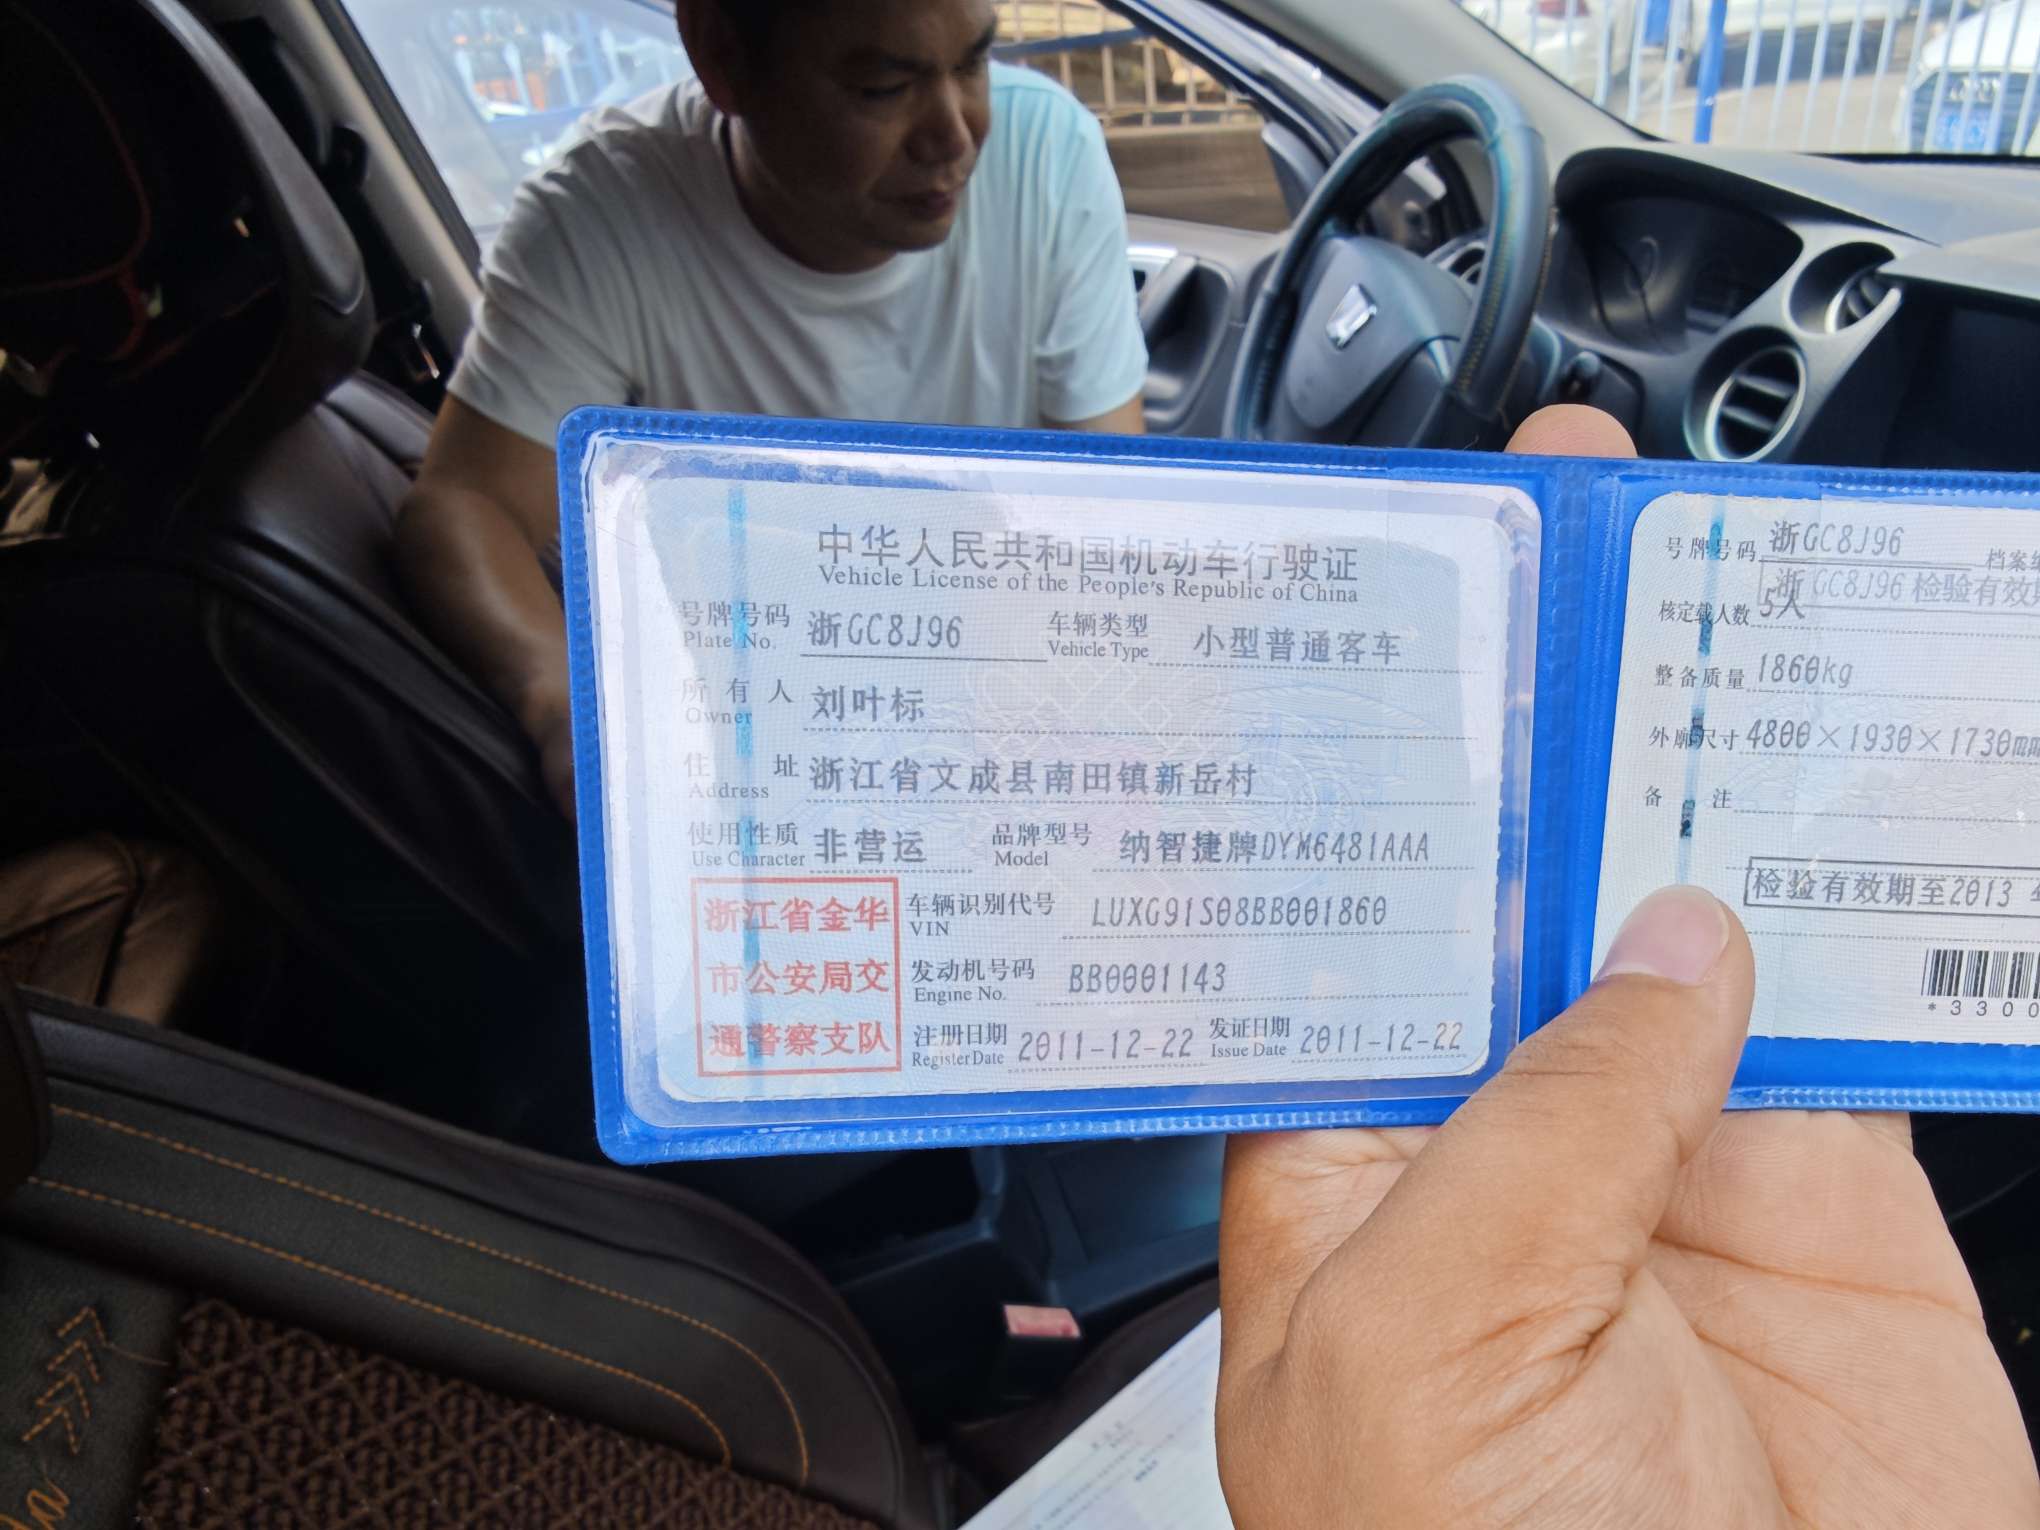 中华人民共和国机动车行驶证
Vehicle License of the People's Republic of China
号牌号码 浙GC8J96 车辆类型 小型普通客车
Plate No. Vehicle Type
所有人 刘叶标
Owner
住址 浙江省文成县南田镇新岳村
Address
使用性质 非营运 品牌型号 纳智捷牌DYM6481AAA
Use Character Model
浙江省金华
市公安局交
通警察支队
车辆识别代号 LUXG91S08BB001860
VIN
发动机号码 BB0001143
Engine No.
注册日期 2011-12-22 发证日期 2011-12-22
Register Date Issue Date
号牌号码 浙GC8J96 档案
浙GC8J96 检验有效
核定载人数 5人
整备质量 1860kg
外廓尺寸 4800×1930×1730mm
备注
检验有效期至2013
*3300